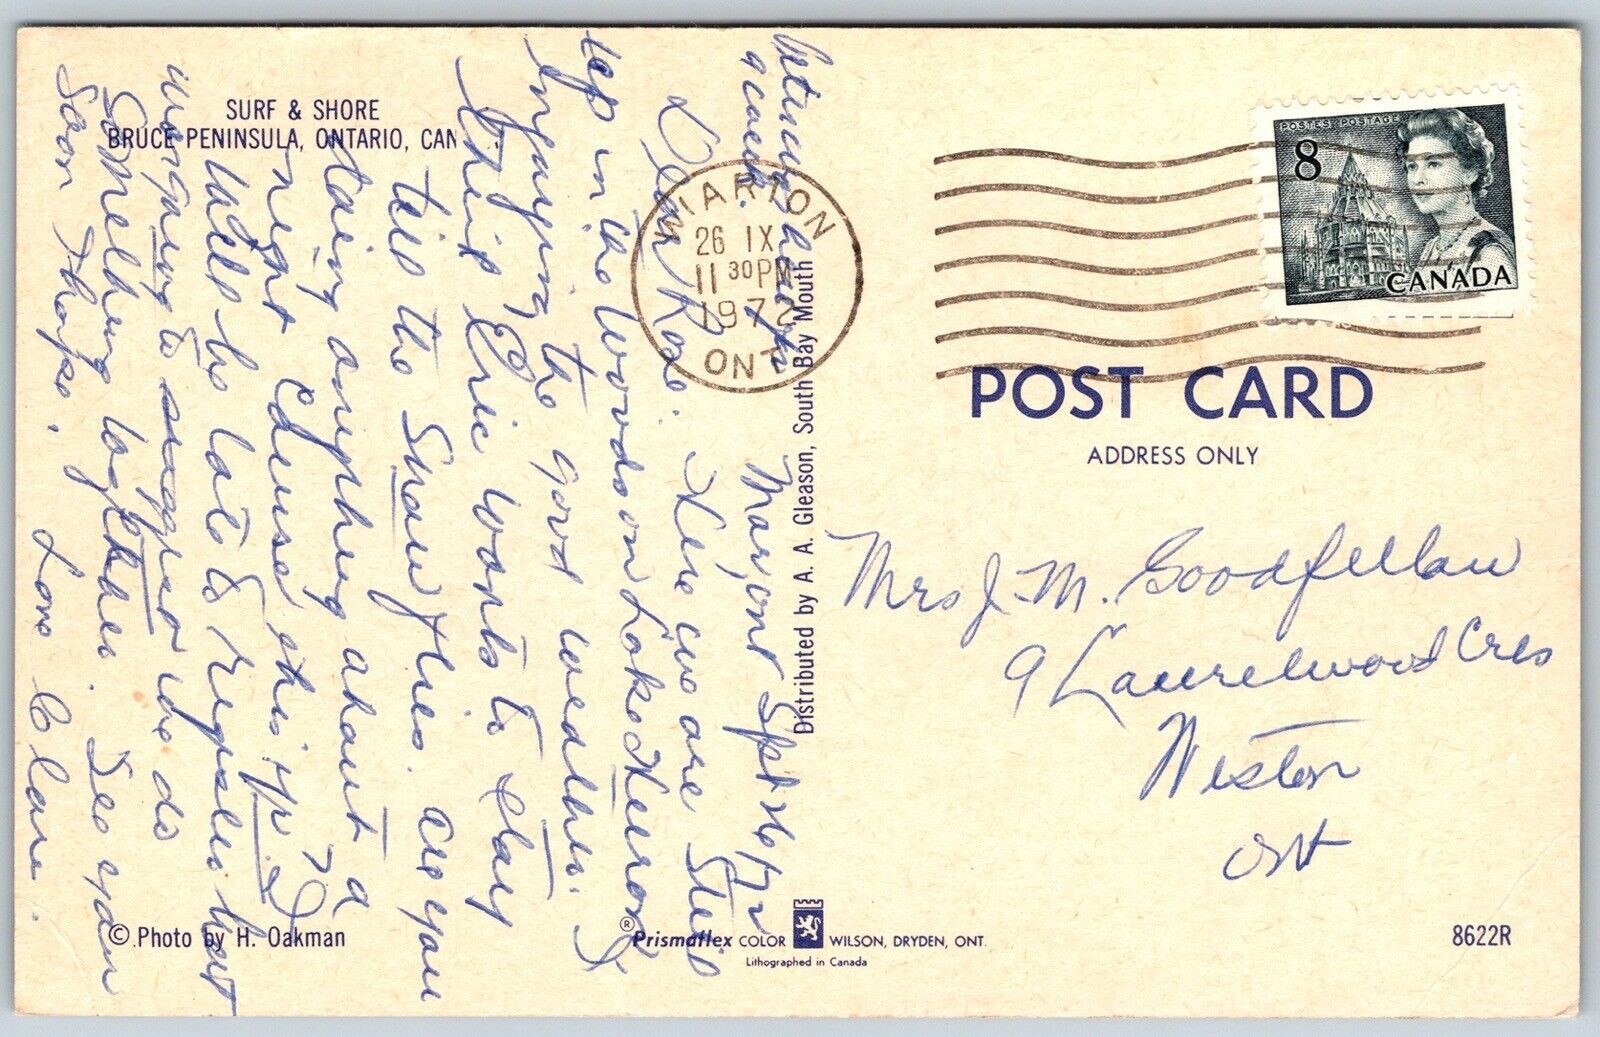 SURF & SHORE
BRUCE PENINSULA, ONTARIO, CAN
Sept 26/72
Dear Rose. Here we are still
up in the woods on Lake Huron
Enjoying the good weather.
think Eric wants to stay
till the Snow flies. are you
doing anything about a
night Course this yr. I
will be late to register but
was going to suggest we do
Something together. See you
Soon I hope. Love Clare.
WIARTON
26 IX
11 30 PM
1972
ONT
Distributed by A. A. Gleason, South Bay Mouth
POSTES POSTAGE
8
CANADA
POST CARD
ADDRESS ONLY
Mrs J. M. Goodfellow
9 Laurelwood Cres
Weston
Ont
© Photo by H. Oakman
® Prismaflex COLOR WILSON, DRYDEN, ONT.
Lithographed in Canada
8622R